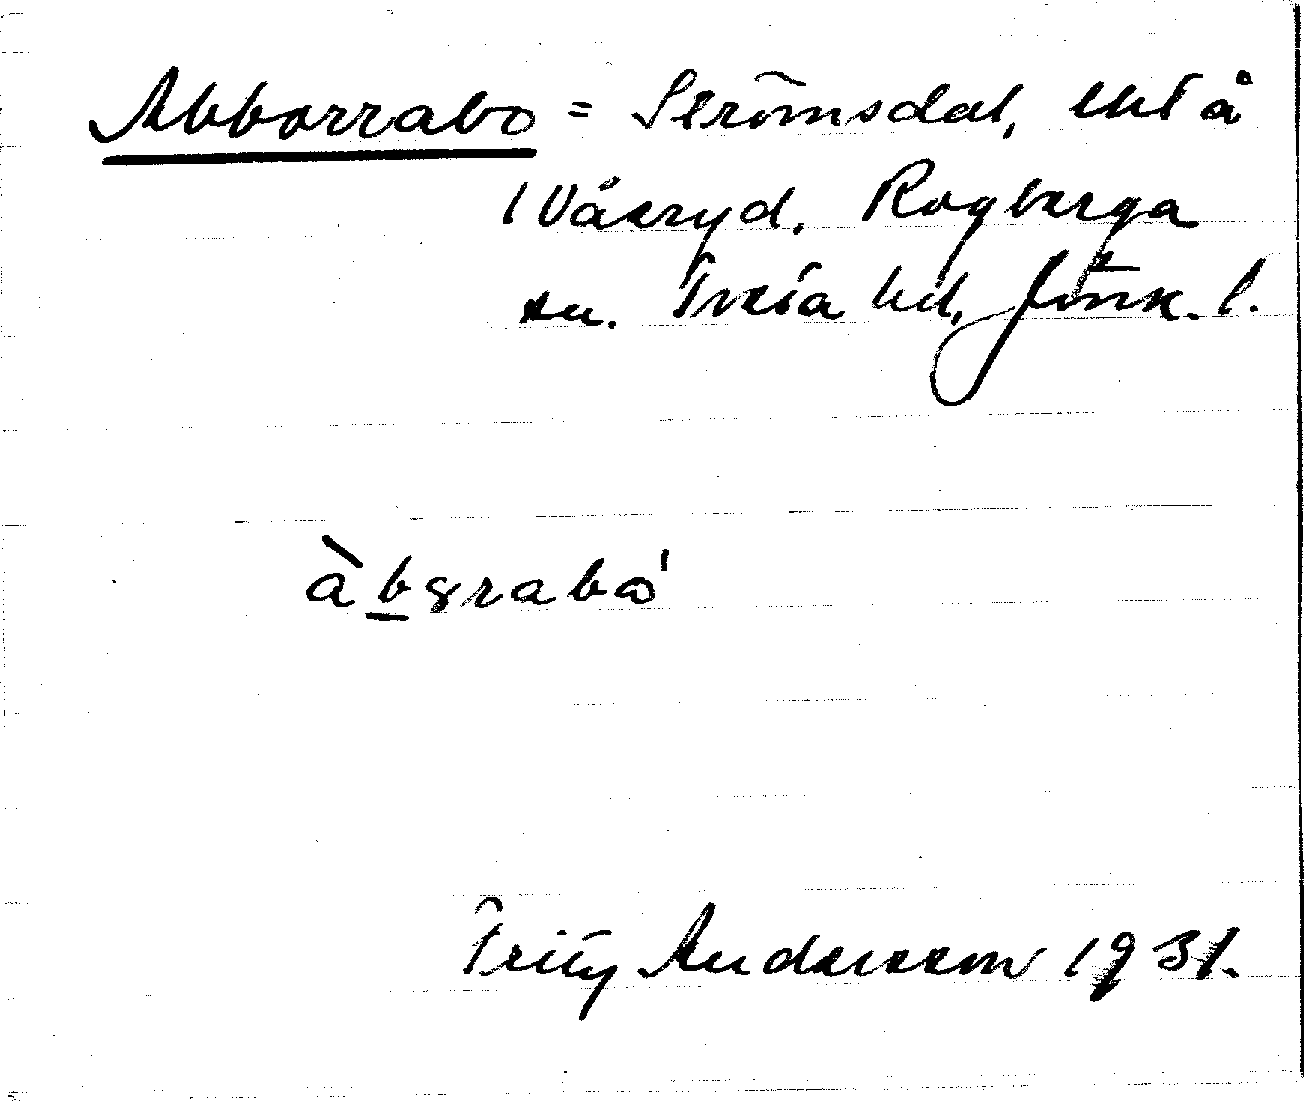 Abborrabo = Strömsdal, tht å
1 Våxryd, Rogberga
sn. Tveta hd, Jönk. l.
àb̲ɞrabω'
Fritz Andersson 1931.